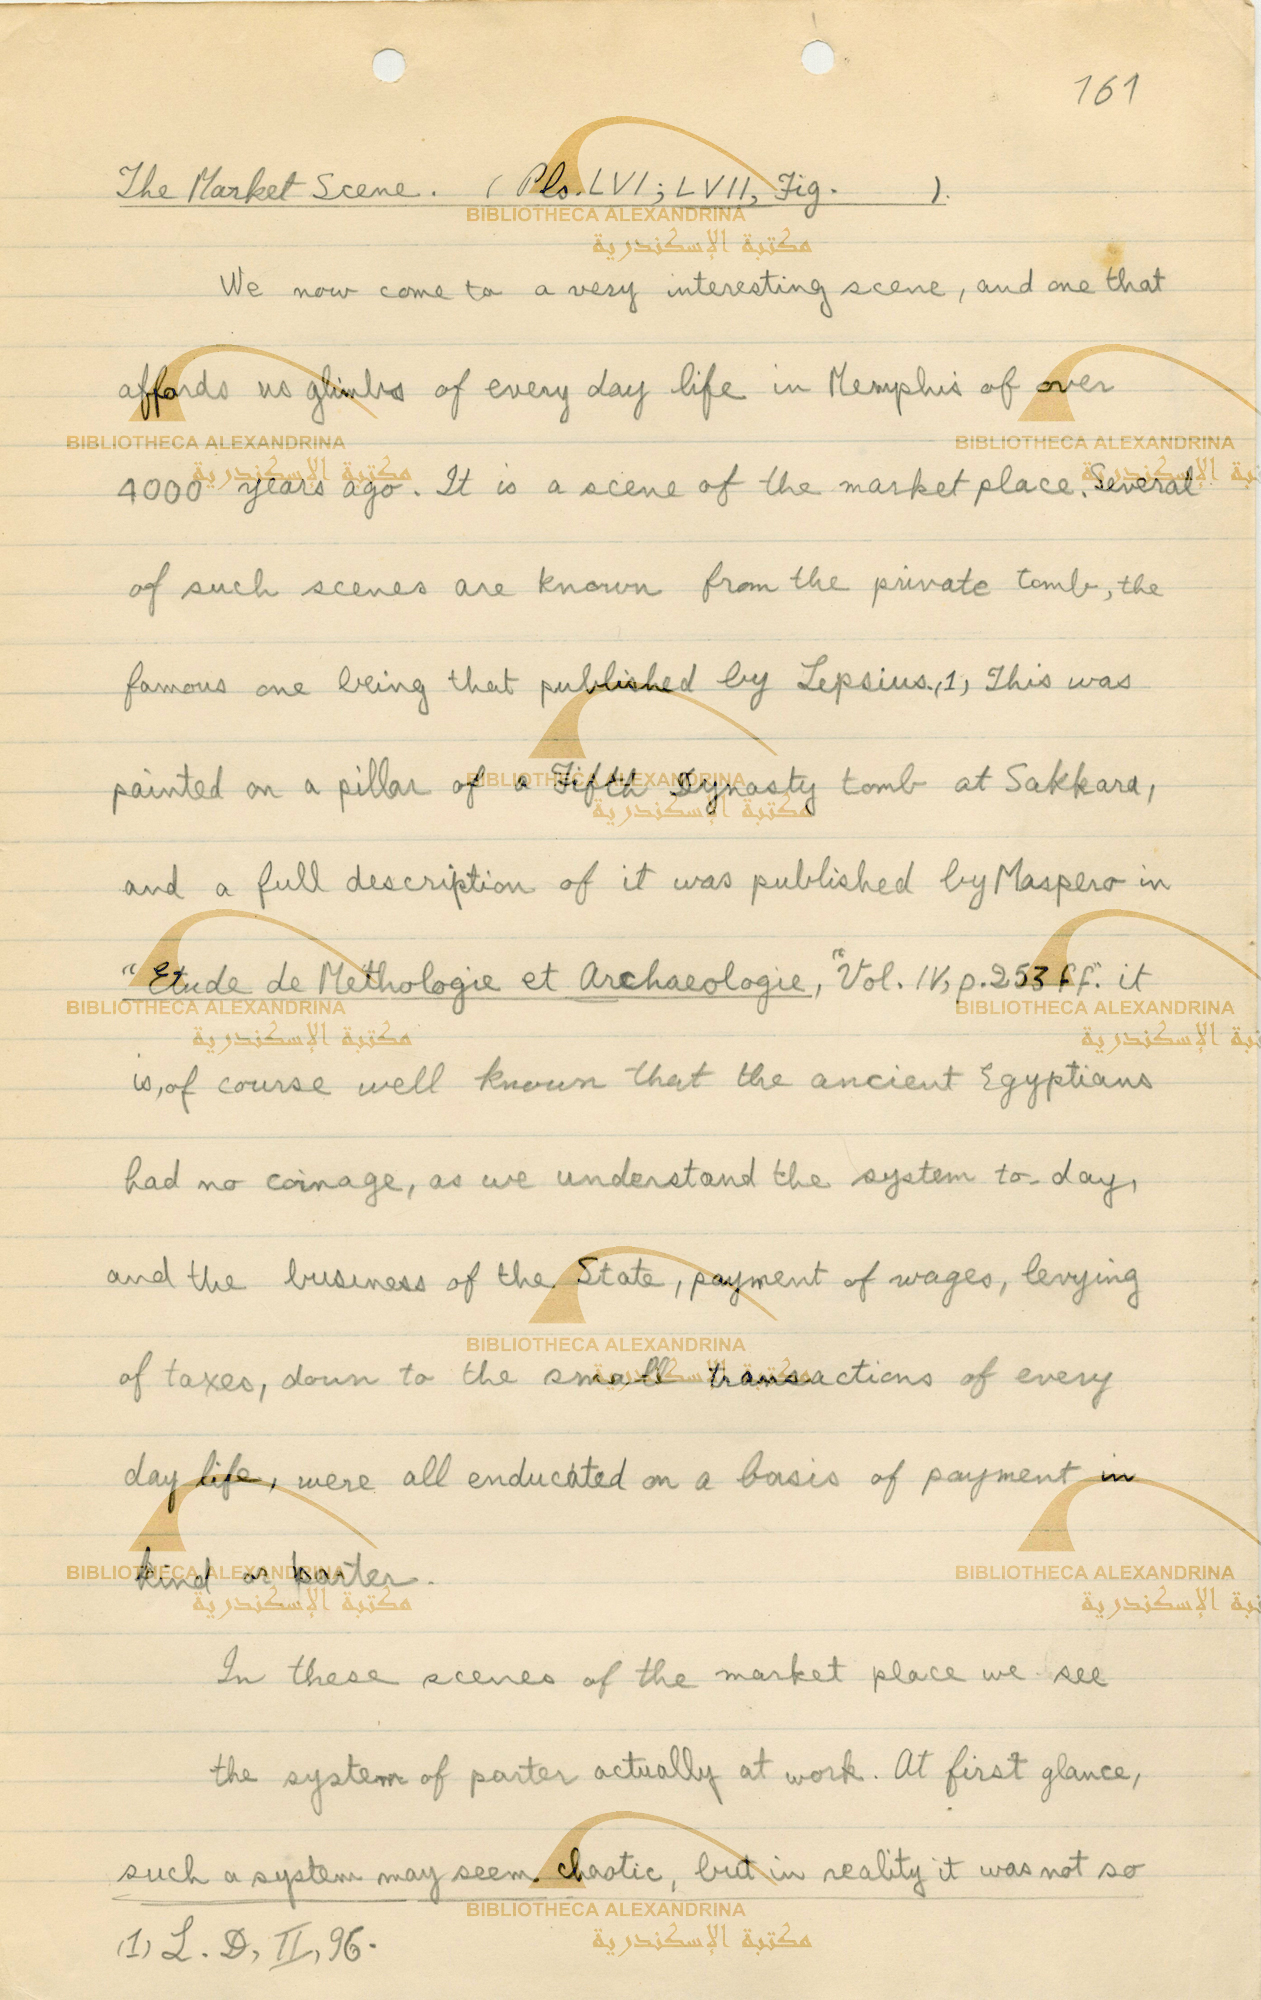 161
The Market Scene. ( Pls. LVI; LVII, Fig. ).
We now come to a very interesting scene, and one that
affords us glimbs of every day life in Memphis of over
4000 years ago. It is a scene of the market place. Several
of such scenes are known from the private tomb, the
famous one being that published by Lepsius.(1) This was
painted on a pillar of a Fifth Dynasty tomb at Sakkara,
and a full description of it was published by Maspero in
"Etude de Methologie et Archaeologie," Vol. IV, p. 253 ff." it
is, of course well known that the ancient Egyptians
had no coinage, as we understand the system to-day,
and the business of the State, payment of wages, levying
of taxes, down to the small transactions of every
day life, were all enducated on a basis of payment in
kind or barter.
In these scenes of the market place we see
the system of parter actually at work. At first glance,
such a system may seem chaotic, but in reality it was not so
(1) L. D, II, 96.
BIBLIOTHECA ALEXANDRINA
مكتبة الإسكندرية